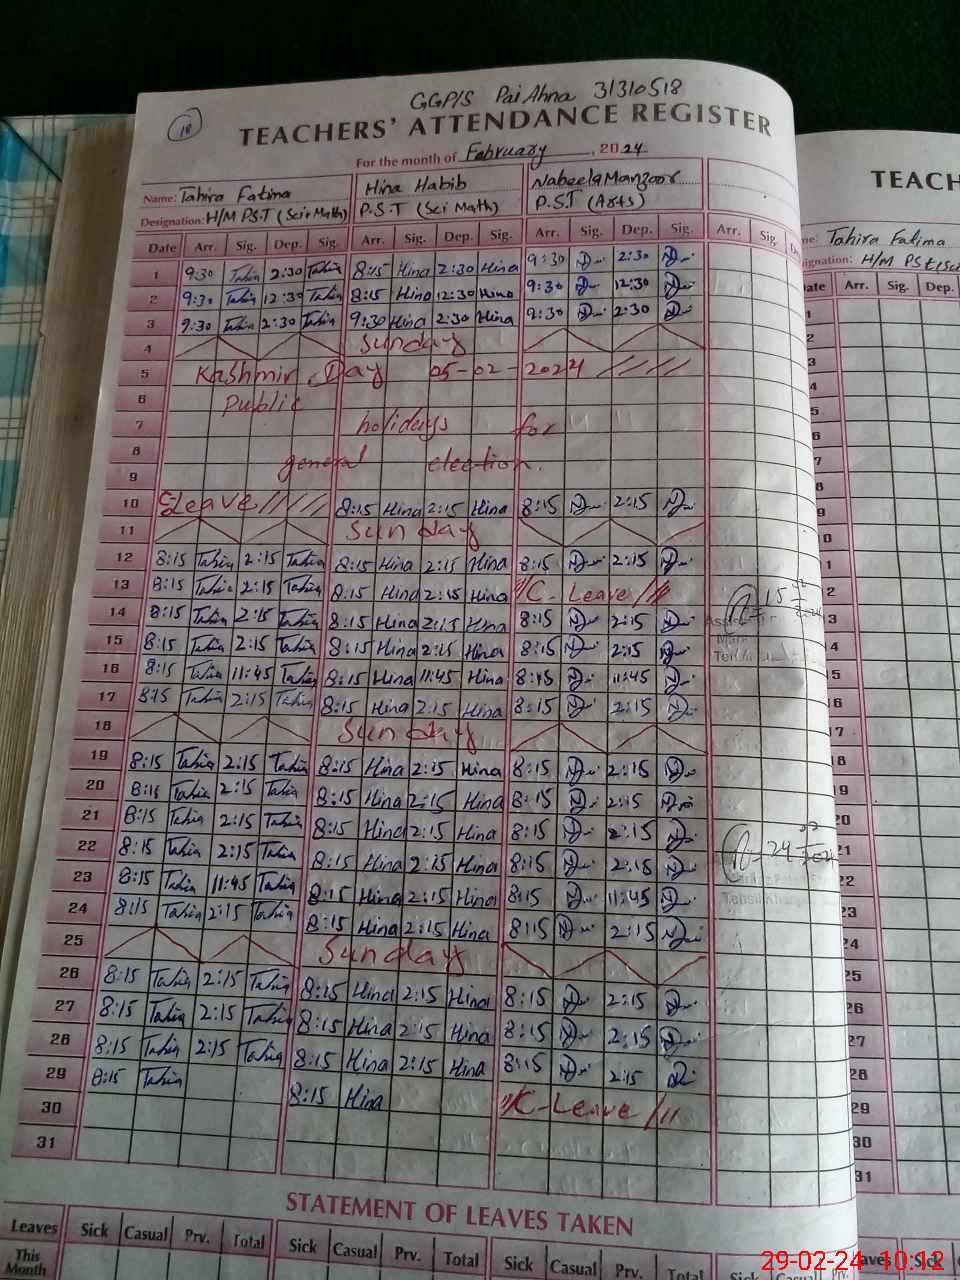 GGP/S Pai Ahna 31310518
18
TEACHERS' ATTENDANCE REGISTER
For the month of February, 2024
Name: Tahira Fatima Hina Habib Nabeela Manzoor
Designation: H/M P.S.T (Sci+Math) P.S.T (Sci Math) P.S.T (Arts)
Date Arr. Sig. Dep. Sig. Arr. Sig. Dep. Sig. Arr. Sig. Dep. Sig. Arr. Sig.
1 9:30 Tahia 2:30 Tahia 8:15 Hina 2:30 Hina 9:30 2:30
2 9:30 Tahia 12:30 Tahia 8:15 Hina 12:30 Hina 9:30 12:30
3 9:30 Tahia 2:30 Tahia 9:30 Hina 2:30 Hina 9:30 2:30
4 Sunday
5 Kashmir Day 05-02-2024
6 Public
7 holidays for
8 general election.
9
10 C-Leave 8:15 Hina 2:15 Hina 8:15 2:15
11 Sunday
12 8:15 Tahia 2:15 Tahia 8:15 Hina 2:15 Hina 8:15 2:15
13 8:15 Tahia 2:15 Tahia 8:15 Hina 2:15 Hina C-Leave
14 8:15 Tahia 2:15 Tahia 8:15 Hina 2:15 Hina 8:15 2:15
15 8:15 Tahia 2:15 Tahia 8:15 Hina 2:15 Hina 8:15 2:15
16 8:15 Tahia 11:45 Tahia 8:15 Hina 11:45 Hina 8:15 11:45
17 8:15 Tahia 2:15 Tahia 8:15 Hina 2:15 Hina 8:15 2:15
18 Sunday
19 8:15 Tahia 2:15 Tahia 8:15 Hina 2:15 Hina 8:15 2:15
20 8:15 Tahia 2:15 Tahia 8:15 Hina 2:15 Hina 8:15 2:15
21 8:15 Tahia 2:15 Tahia 8:15 Hina 2:15 Hina 8:15 2:15
22 8:15 Tahia 2:15 Tahia 8:15 Hina 2:15 Hina 8:15 2:15
23 8:15 Tahia 11:45 Tahia 8:15 Hina 2:15 Hina 8:15 11:45
24 8:15 Tahia 2:15 Tahia 8:15 Hina 2:15 Hina 8:15 2:15
25 Sunday
26 8:15 Tahia 2:15 Tahia 8:15 Hina 2:15 Hina 8:15 2:15
27 8:15 Tahia 2:15 Tahia 8:15 Hina 2:15 Hina 8:15 2:15
28 8:15 Tahia 2:15 Tahia 8:15 Hina 2:15 Hina 8:15 2:15
29 8:15 Tahia 8:15 Hina C-Leave
30
31
STATEMENT OF LEAVES TAKEN
Leaves Sick Casual Prv. Total Sick Casual Prv. Total Sick Casual Prv. Total Sick Casual Prv.
This Month
TEACH
Tahira Fatima
H/M
Arr. Sig. Dep.
29-02-24 10:12